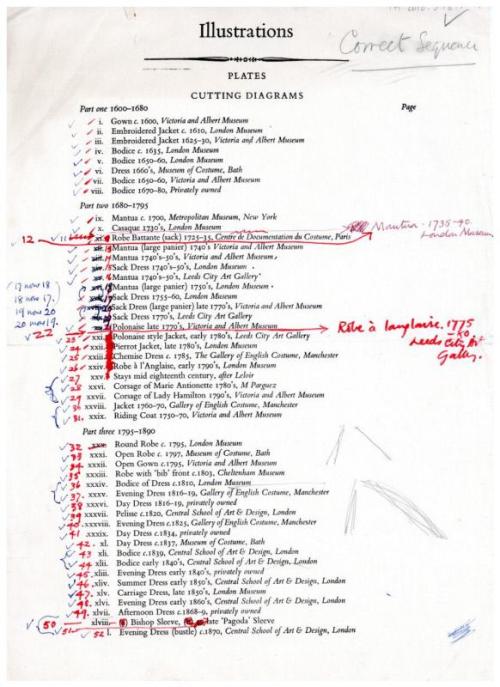 Illustrations
Correct Sequence
PLATES
CUTTING DIAGRAMS
Part one 1600–1680 Page
i. Gown c. 1600, Victoria and Albert Museum
ii. Embroidered Jacket c. 1610, London Museum
iii. Embroidered Jacket 1625–30, Victoria and Albert Museum
iv. Bodice c. 1635, London Museum
v. Bodice 1650–60, London Museum
vi. Dress 1660's, Museum of Costume, Bath
vii. Bodice 1650–60, Victoria and Albert Museum
viii. Bodice 1670–80, Privately owned
Part two 1680–1795
ix. Mantua c. 1700, Metropolitan Museum, New York
x. Casaque 1730's, London Museum
Mantua. 1735-40. London Museum
12 11 xi. Robe Battante (sack) 1725–35, Centre de Documentation du Costume, Paris
Mantua (large panier) 1740's Victoria and Albert Museum
Mantua 1740's–50's, Victoria and Albert Museum
Sack Dress 1740's–50's, London Museum
Mantua 1740's–50's, Leeds City Art Gallery
17 now 18 Mantua (large panier) 1750's, London Museum
18 now 17. Sack Dress 1755–60, London Museum
19 now 20 Sack Dress (large panier) late 1770's, Victoria and Albert Museum
20 now 19. Sack Dress 1770's, Leeds City Art Gallery
22 Polonaise late 1770's, Victoria and Albert Museum Robe à l'anglaise. 1775
-80.
Leeds City Art
Gallery.
23 xxi. Polonaise style Jacket, early 1780's, Leeds City Art Gallery
24 xxii. Pierrot Jacket, late 1780's, London Museum
25 xxiii. Chemise Dress c. 1785, The Gallery of English Costume, Manchester
26 xxiv. Robe à l'Anglaise, early 1790's, London Museum
27 xxv. Stays mid eighteenth century, after Leloir
28 xxvi. Corsage of Marie Antionette 1780's, M Parguez
29 xxvii. Corsage of Lady Hamilton 1790's, Victoria and Albert Museum
30 xxviii. Jacket 1760–70, Gallery of English Costume, Manchester
31. xxix. Riding Coat 1750–70, Victoria and Albert Museum
Part three 1795–1890
32 xxx. Round Robe c. 1795, London Museum
33 xxxi. Open Robe c. 1797, Museum of Costume, Bath
34 xxxii. Open Gown c.1795, Victoria and Albert Museum
35 xxxiii. Robe with 'bib' front c.1803, Cheltenham Museum
36 xxxiv. Bodice of Dress c.1810, London Museum
37. xxxv. Evening Dress 1816–19, Gallery of English Costume, Manchester
38 xxxvi. Day Dress 1816–19, privately owned
39 xxxvii. Pelisse c.1820, Central School of Art & Design, London
40. xxxviii. Evening Dress c.1825, Gallery of English Costume, Manchester
41 xxxix. Day Dress c.1834, privately owned
42. xl. Day Dress c.1837, Museum of Costume, Bath
43 xli. Bodice c.1839, Central School of Art & Design, London
44 xlii. Bodice early 1840's, Central School of Art & Design, London
45 xliii. Evening Dress early 1840's, privately owned
46 xliv. Summer Dress early 1850's, Central School of Art & Design, London
47. xlv. Carriage Dress, late 1850's, London Museum
48. xlvi. Evening Dress early 1860's, Central School of Art & Design, London
49. xlvii. Afternoon Dress c.1868–9, privately owned
50 xlviii. Bishop Sleeve, late 'Pagoda' Sleeve
51
52 l. Evening Dress (bustle) c.1870, Central School of Art & Design, London